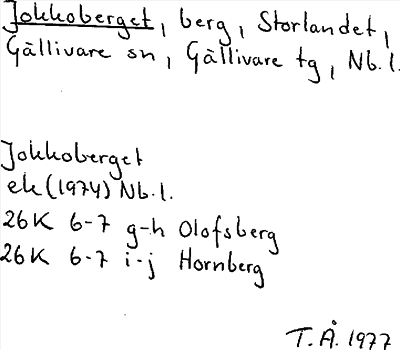 Jokkoberget, berg, Storlandet,
Gällivare sn, Gällivare tg, Nb.l.
Jokkoberget
ek (1974) Nb.l.
26K 6-7 g-h Olofsberg
26K 6-7 i-j Hornberg
T.Å. 1977